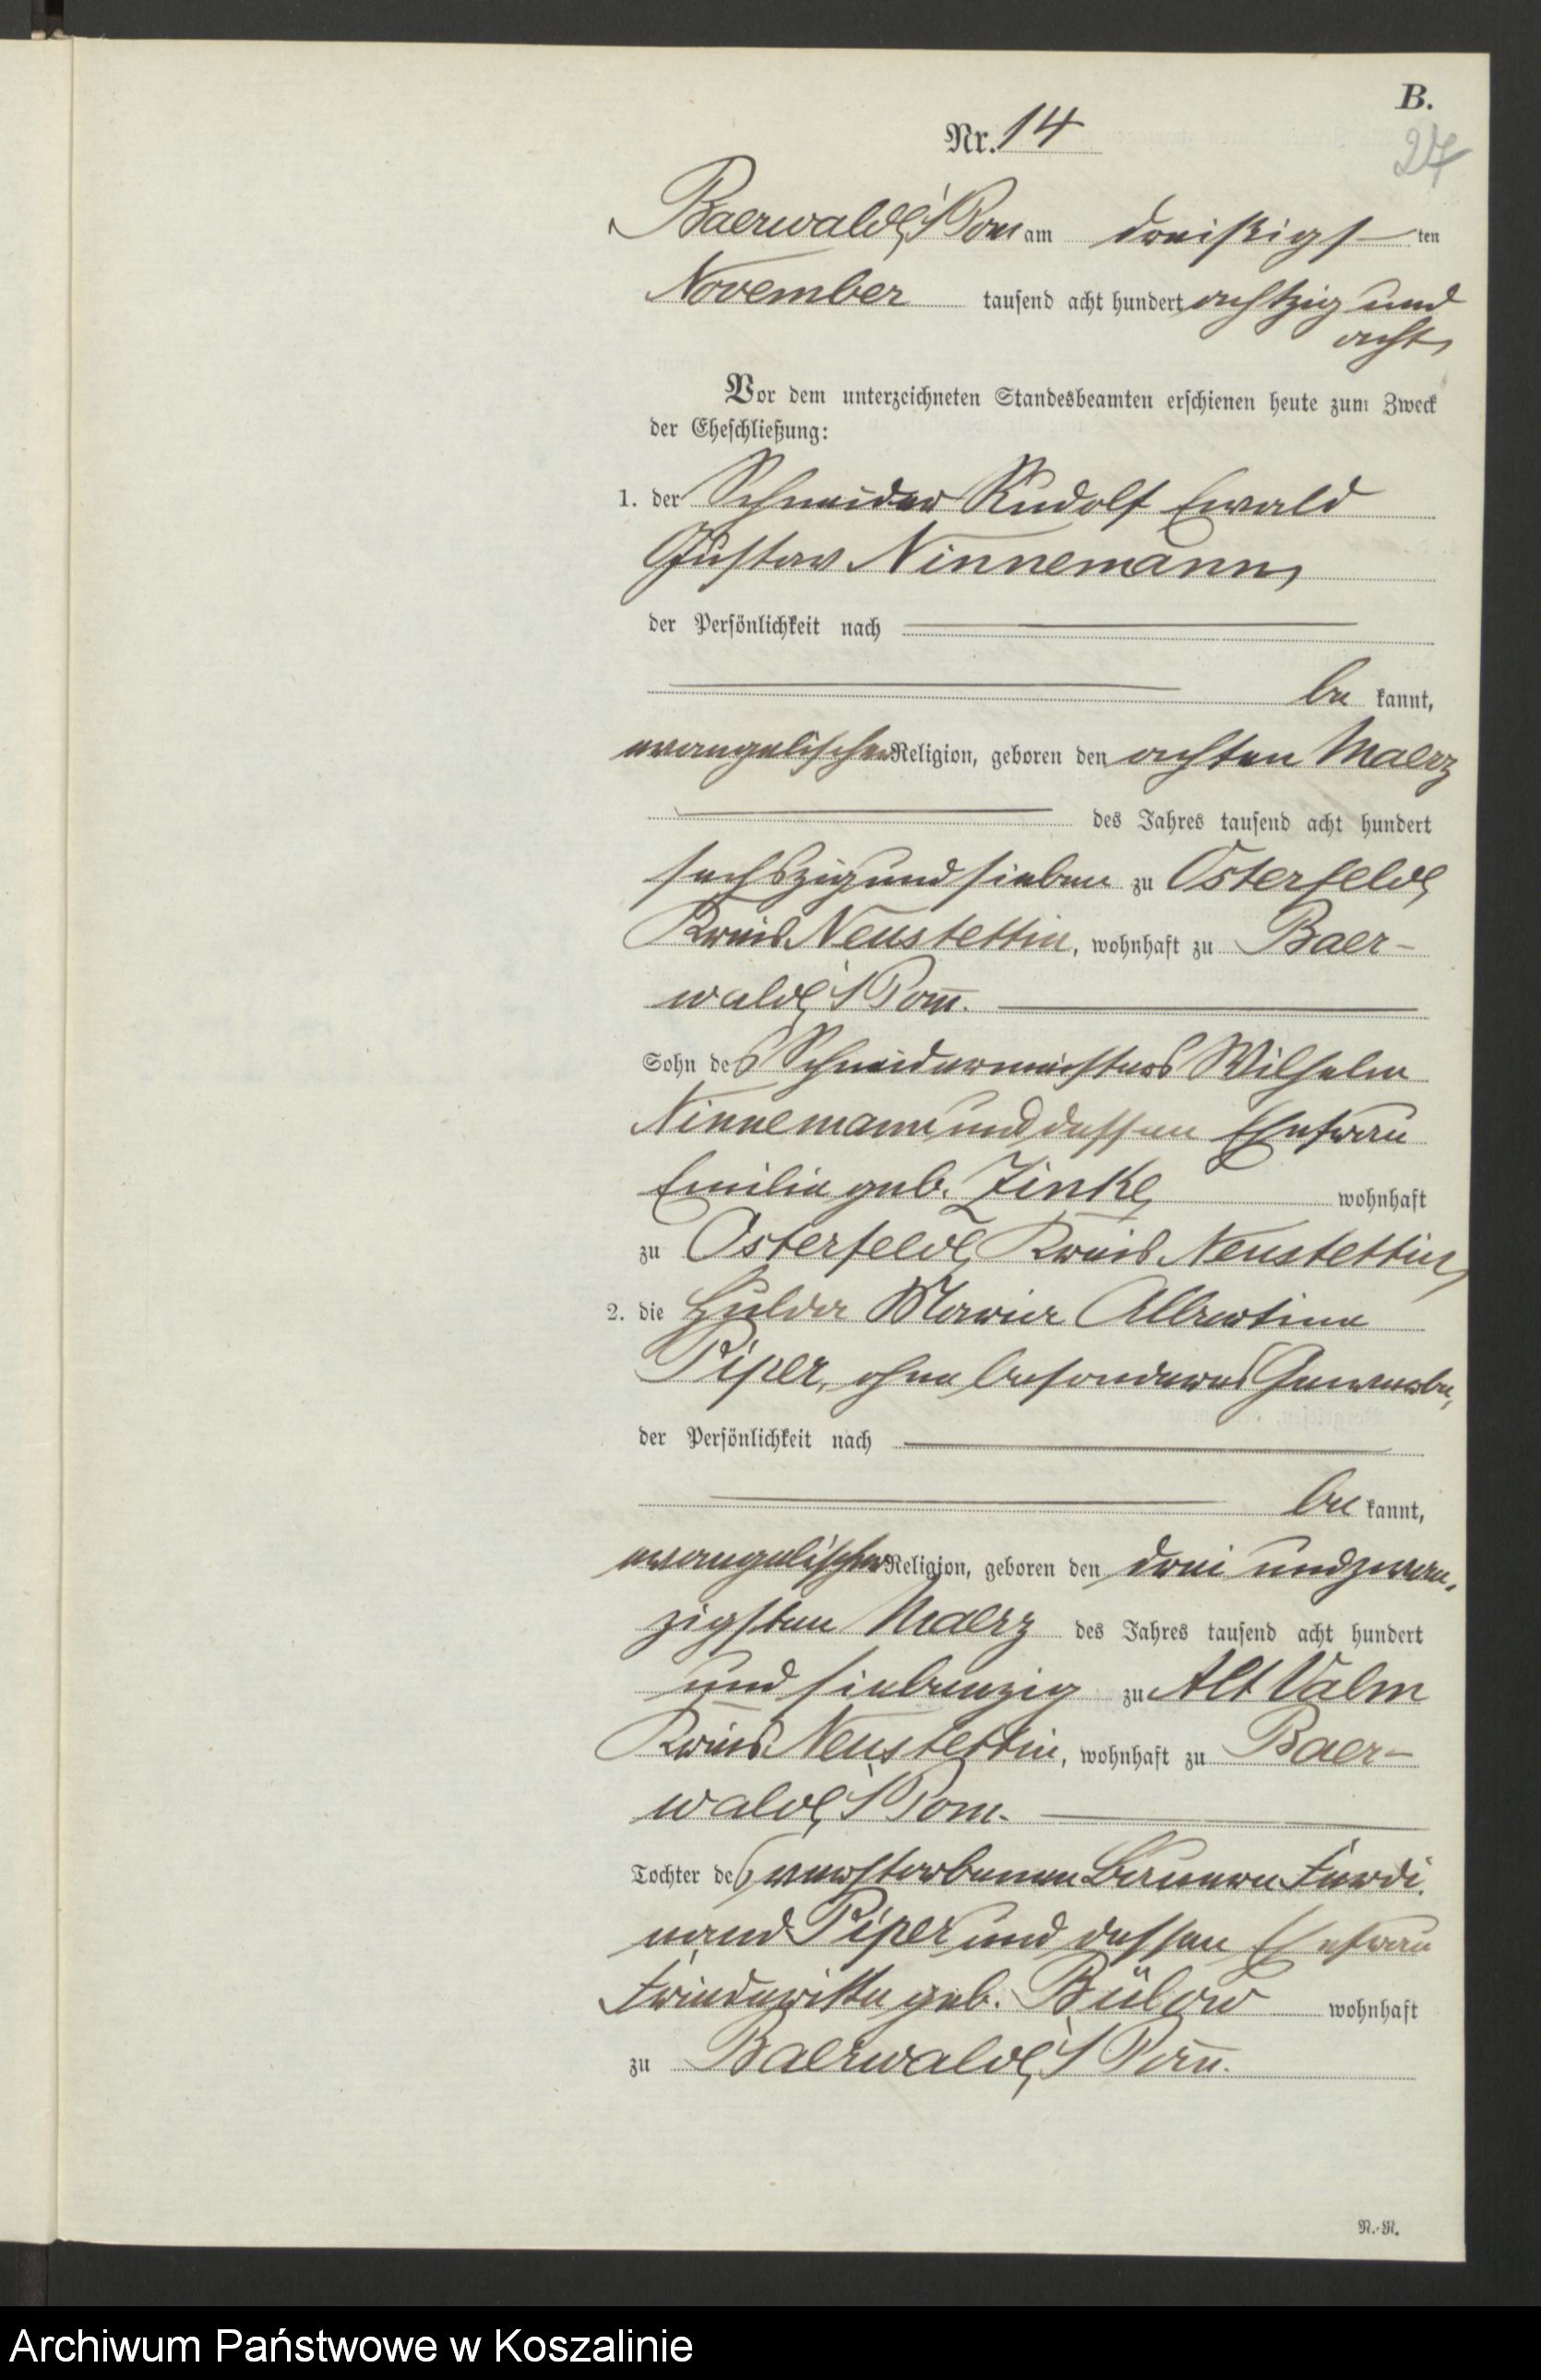 B.
27
Nr. 14
Baerwalde i/Pom am dreißigsten
November tausend acht hundert achtzig und
acht,
Vor dem unterzeichneten Standesbeamten erschienen heute zum Zweck
der Eheschließung:
1. der Schneider Rudolf Ewald
Gustav Ninnemann,
der Persönlichkeit nach
be kannt,
evangelischer Religion, geboren den achten Maerz
des Jahres tausend acht hundert
sechszig und sieben zu Osterfelde,
Kreis Neustettin, wohnhaft zu Baer-
walde i/Pom.
Sohn des Schneidermeisters Wilhelm
Ninnemann und dessen Ehefrau
Emilie geb. Zinke, wohnhaft
zu Osterfelde, Kreis Neustettin,
2. die Hulda Marie Albertine
Piper, ohne besonderes Gewerbe,
der Persönlichkeit nach
be kannt,
evangelischer Religion, geboren den drei und zwan-
zigsten Maerz des Jahres tausend acht hundert
und siebenzig zu Alt Valm
Kreis Neustettin, wohnhaft zu Baer-
walde i/Pom.
Tochter des verstorbenen Bauern Ferdi-
nand Piper und dessen Ehefrau
Friederikke geb. Bülow wohnhaft
zu Baerwalde i/Pom.
N.-N.
Archiwum Państwowe w Koszalinie